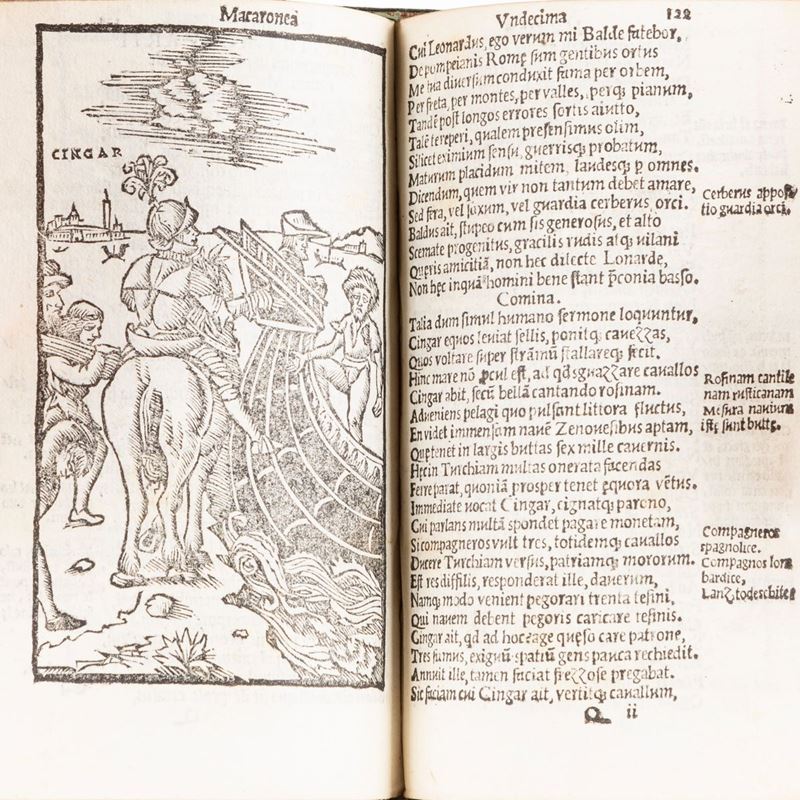 Macaroneá
CINGAR
Vndecima 122
Cui Leonardus, ego verum mi Balde fatebor,
De pompeianis Romę sum gentibus ortus
Me tua diuersum conduxit fama per orbem,
Per freta, per montes, per valles, perq; pianum,
Tandē post longos errores sortis aiutto,
Talē te reperi, qualem presensimus olim,
Silicet eximium sensu, guerrisq; probatum,
Maturum placidum mitem, laudesq; p omnes.
Dicendum, quem vir non tantum debet amare,
Sed fera, vel saxum, vel guardia cerberus, orci.
Baldus ait, stupeo cum sis generosus, et alto
Scemate progenitus, gracilis rudis atq; uilani
Queris amicitiā, non hec dilecte Lonarde,
Non hęc inquā homini bene stant pconia basso.
Comina.
Talia dum simul humano sermone loquuntur,
Cingar equos leuiat sellis, ponitq; cauezzas,
Quos voltare super strāmū stallareq; fecit.
Hinc mare nō pcul est, ad qd sguazzare cauallos
Cingar abit, secū bellā cantando rosinam.
Adueniens pelagi quo pulsant littora fluctus,
En videt immensam nauē Zenouesibus aptam,
Quę tenet in largis buttas sex mille cauernis.
Hęc in Turchiam multas onerata facendas
Ferre parat, quoniā prosper tenet ęquora vētus.
Immediate uocat Cingar, cignatq; parono,
Cui parlans multā spondet pagare monetam,
Si compagneros vult tres, totidemq; cauallos
Ducere Turchiam versus, patriamq; mororum.
Est res diffilis, responderat ille, dauerum,
Namq; modo venient pegorari trenta tesini,
Qui nauem debent pegoris caricare tesinis.
Cingar ait, qd ad hoc? age quęso care patrone,
Tres sumus, exiguū spatiū gens pauca rechiedit.
Annuit ille, tamen faciat frezzose pregabat.
Sic faciam cui Cingar ait, vertitq; cauallum,
Q ii
Cerberus appositio
guardia orci.
Rosinam cantile
nam rusticanam
Mesura nauium
istę sunt buttę.
Compagneros
spagnolice.
Compagnos lom
bardice,
Lanz todeschice